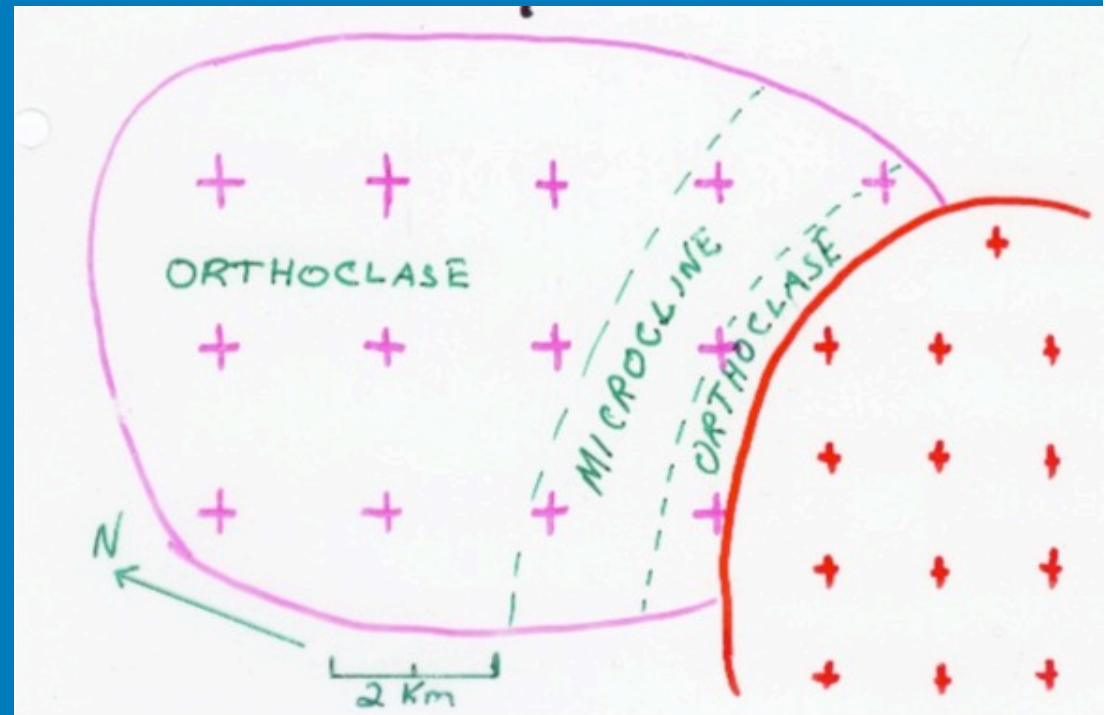 ORTHOCLASE
MICROCLINE
ORTHOCLASE
N
2 Km